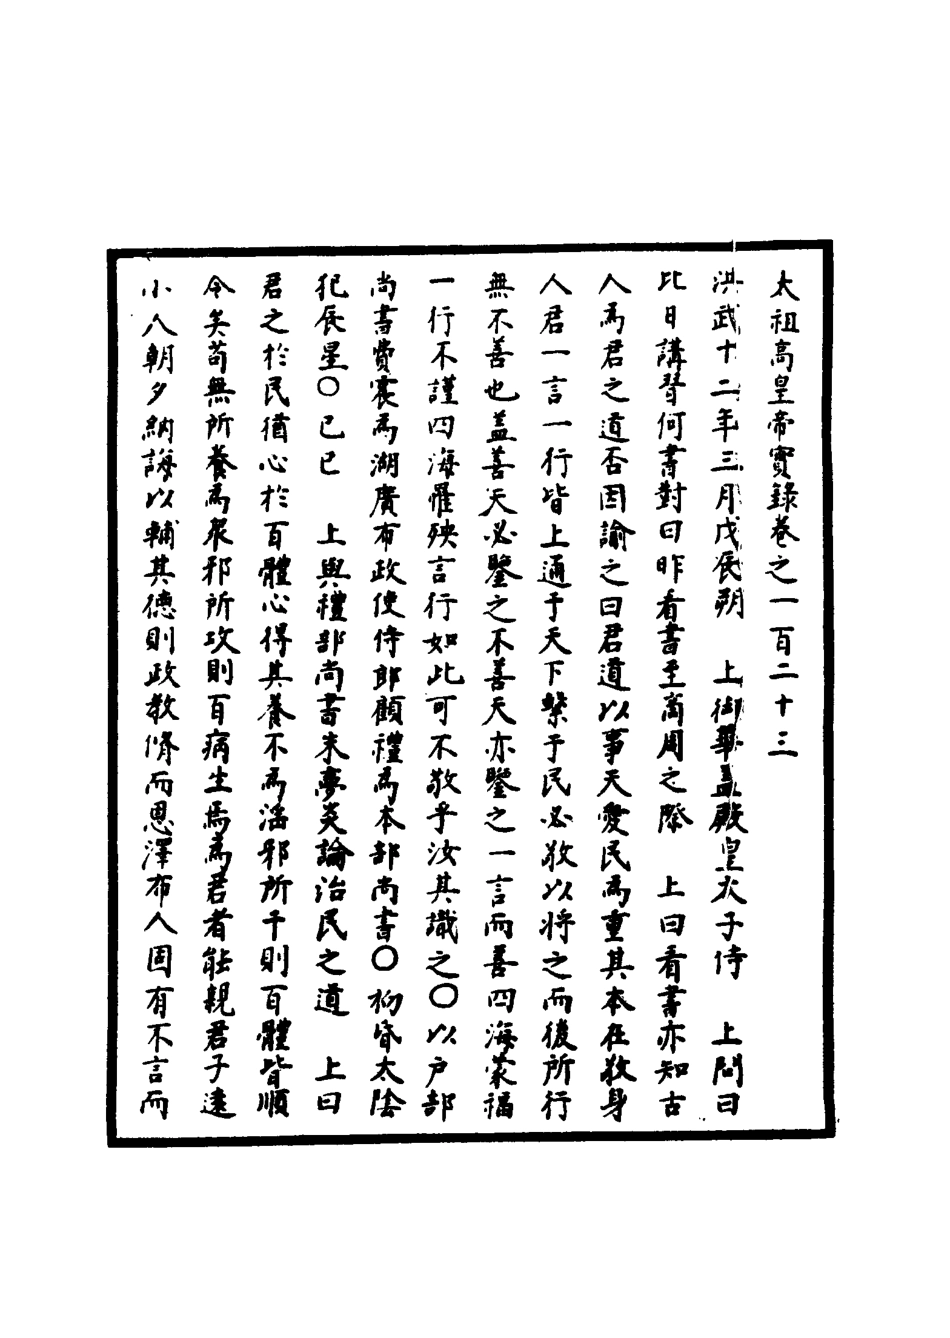 太祖高皇帝實錄卷之一百二十三
洪武十二年三月戊辰朔　上御華蓋殿皇太子侍　上問曰
比日講習何書對曰昨看書至商周之際　上曰看書亦知古
人為君之道否因諭之曰君道以事天愛民為重其本在敬身
人君一言一行皆上通于天下繫于民必敬以將之而後所行
無不善也蓋善天必鑒之不善天亦鑒之一言而善四海蒙福
一行不謹四海罹殃言行如此可不敬乎汝其識之○以戶部
尚書費震為湖廣布政使侍郎顧禮為本部尚書○初昏太陰
犯辰星○己巳　上與禮部尚書朱夢炎論治民之道　上曰
君之於民猶心於百體心得其養不為滛邪所干則百體皆順
令矣苟無所養為眾邪所攻則百病生焉為君者能親君子遠
小人朝夕納誨以輔其德則政教脩而恩澤布人固有不言而